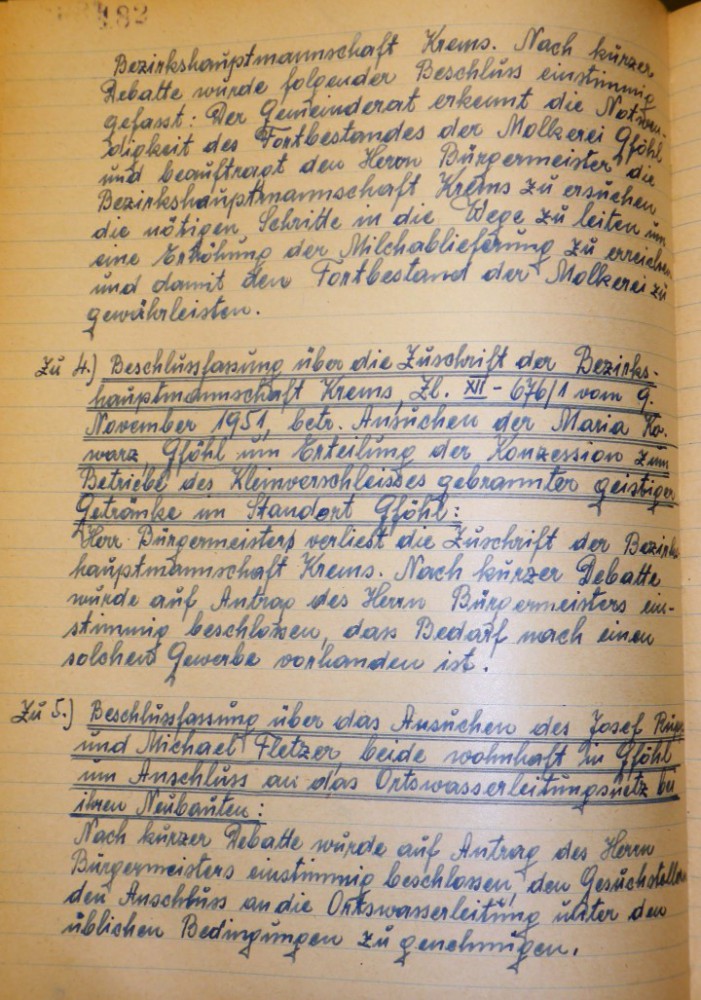 182
Bezirkshauptmannschaft Krems. Nach kurzer
Debatte wurde folgender Beschluss einstimmig
gefasst: Der Gemeinderat erkennt die Notwen-
digkeit des Fortbestandes der Molkerei Gföhl
und beauftragt den Herrn Bürgermeister die
Bezirkshauptmannschaft Krems zu ersuchen
die nötigen Schritte in die Wege zu leiten um
eine Erhöhung der Milchablieferung zu erreichen
und damit den Fortbestand der Molkerei zu
gewährleisten.
Zu 4.) Beschlussfassung über die Zuschrift der Bezirks-
hauptmannschaft Krems, Zl. XII - 676/1 vom 9.
November 1951, betr. Ansuchen der Maria Ko-
warz, Gföhl um Erteilung der Konzession zum
Betriebe des Kleinverschleisses gebrannter geistiger
Getränke im Standort Gföhl:
Herr Bürgermeisters verliest die Zuschrift der Bezirks
hauptmannschaft Krems. Nach kurzer Debatte
wurde auf Antrag des Herrn Bürgermeisters ein-
stimmig beschlossen, dass Bedarf nach einen
solchen Gewerbe vorhanden ist.
Zu 5.) Beschlussfassung über das Ansuchen des Josef
und Michael Fletzer, beide wohnhaft in Gföhl
um Anschluss an das Ortswasserleitungsnetz bei
ihren Neubauten:
Nach kurzer Debatte wurde auf Antrag des Herrn
Bürgermeisters einstimmig beschlossen, den Gesuchstellern
den Anschluss an die Ortswasserleitung unter den
üblichen Bedingungen zu genehmigen.